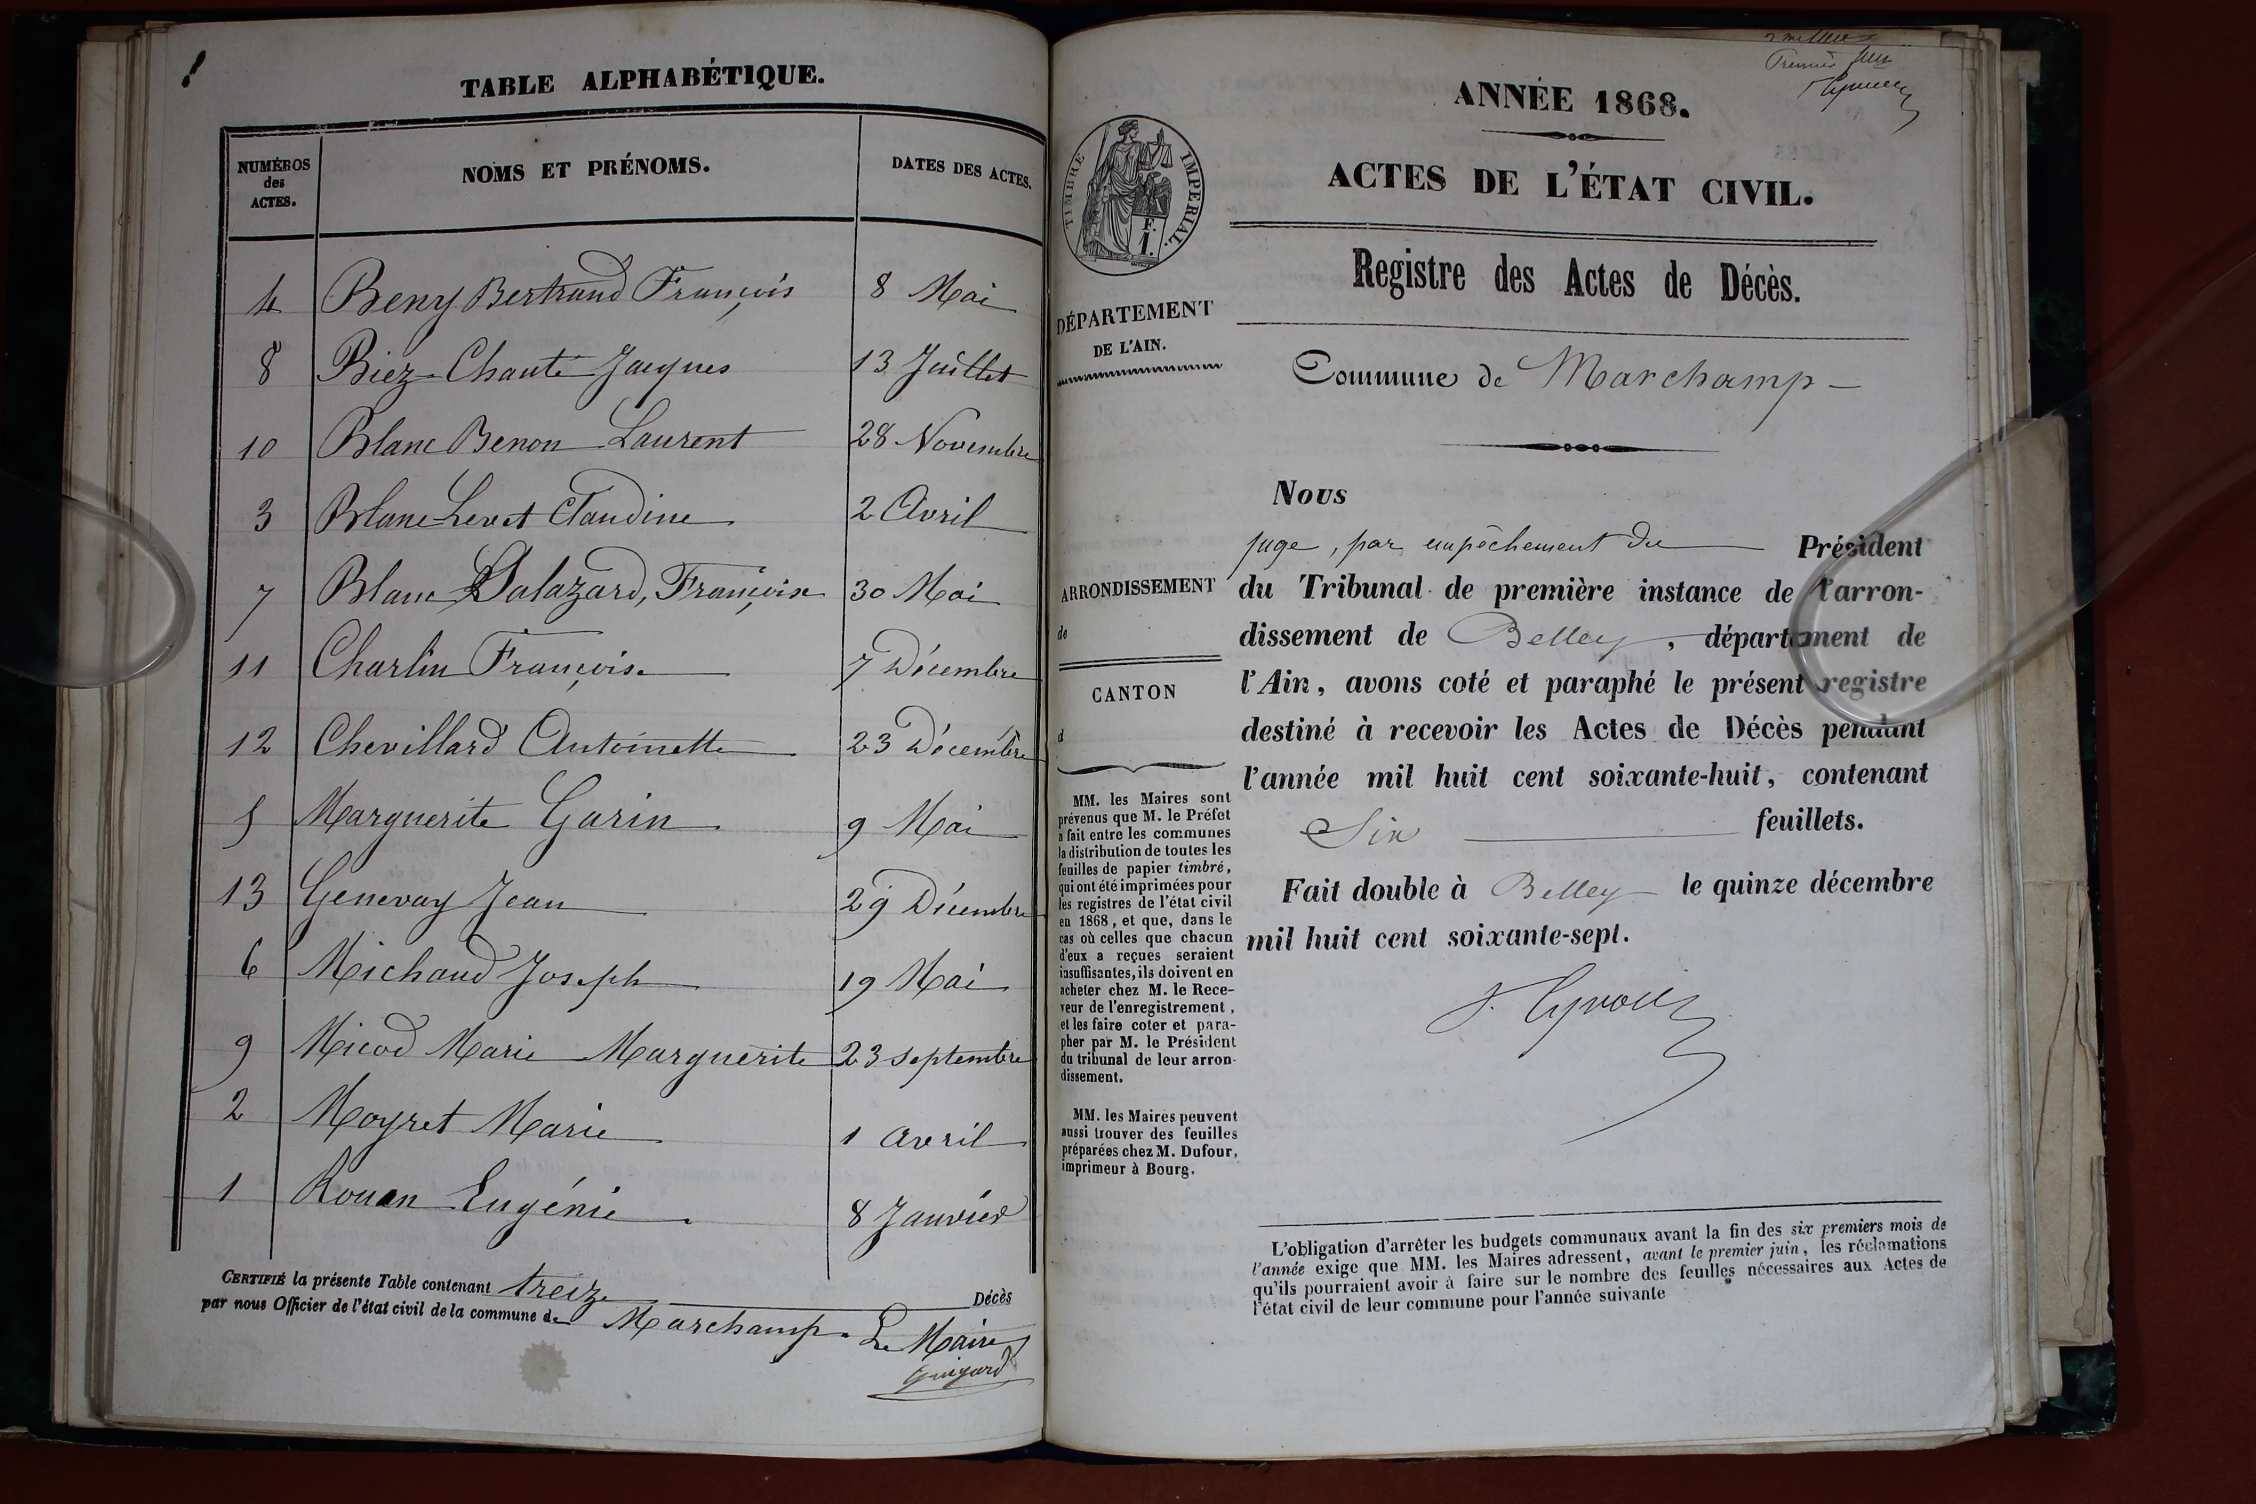 TABLE ALPHABÉTIQUE.
NUMÉROS
des
ACTES.
NOMS ET PRÉNOMS.
DATES DES ACTES.
4 Beny Bertrand François 8 Mai
8 Biez-Chanté Jacques 13 Juillet
10 Blanc Benon Laurent 28 Novembre
3 Blanc Levet Claudine 2 Avril
7 Blanc Salazard, Françoise 30 Mai
11 Charlin Françoise 7 Décembre
12 Chevillard Antoinette 23 Décembre
5 Marguerite Garin 9 Mai
13 Genevay Jean 29 Décembre
6 Michaud Joseph 19 Mai
9 Micod Marie Marguerite 23 septembre
2 Moyret Marie 1 avril
1 Rouan Eugénie 8 Janvier
CERTIFIÉ la présente Table contenant treize Décès
par nous Officier de l'état civil de la commune de Marchamp.
Le Maire
Guigard
Premier
ANNÉE 1868.
ACTES DE L'ÉTAT CIVIL.
TIMBRE IMPERIAL.
F.
1.
Registre des Actes de Décès.
DÉPARTEMENT
DE L'AIN.
Commune de Marchamp
ARRONDISSEMENT
de
CANTON
d
MM. les Maires sont
prévenus que M. le Préfet
a fait entre les communes
la distribution de toutes les
feuilles de papier timbré,
qui ont été imprimées pour
les registres de l'état civil
en 1868, et que, dans le
cas où celles que chacun
d'eux a reçues seraient
insuffisantes, ils doivent en
acheter chez M. le Rece-
veur de l'enregistrement,
et les faire coter et para-
pher par M. le Président
du tribunal de leur arron-
dissement.
MM. les Maires peuvent
aussi trouver des feuilles
préparées chez M. Dufour,
imprimeur à Bourg.
Nous
juge, par empêchement du Président
du Tribunal de première instance de l'arron-
dissement de Belley, département de
l'Ain, avons coté et paraphé le présent registre
destiné à recevoir les Actes de Décès pendant
l'année mil huit cent soixante-huit, contenant
Six feuillets.
Fait double à Belley le quinze décembre
mil huit cent soixante-sept.
L'obligation d'arrêter les budgets communaux avant la fin des six premiers mois de
l'année exige que MM. les Maires adressent, avant le premier juin, les réclamations
qu'ils pourraient avoir à faire sur le nombre des feuilles nécessaires aux Actes de
l'état civil de leur commune pour l'année suivante